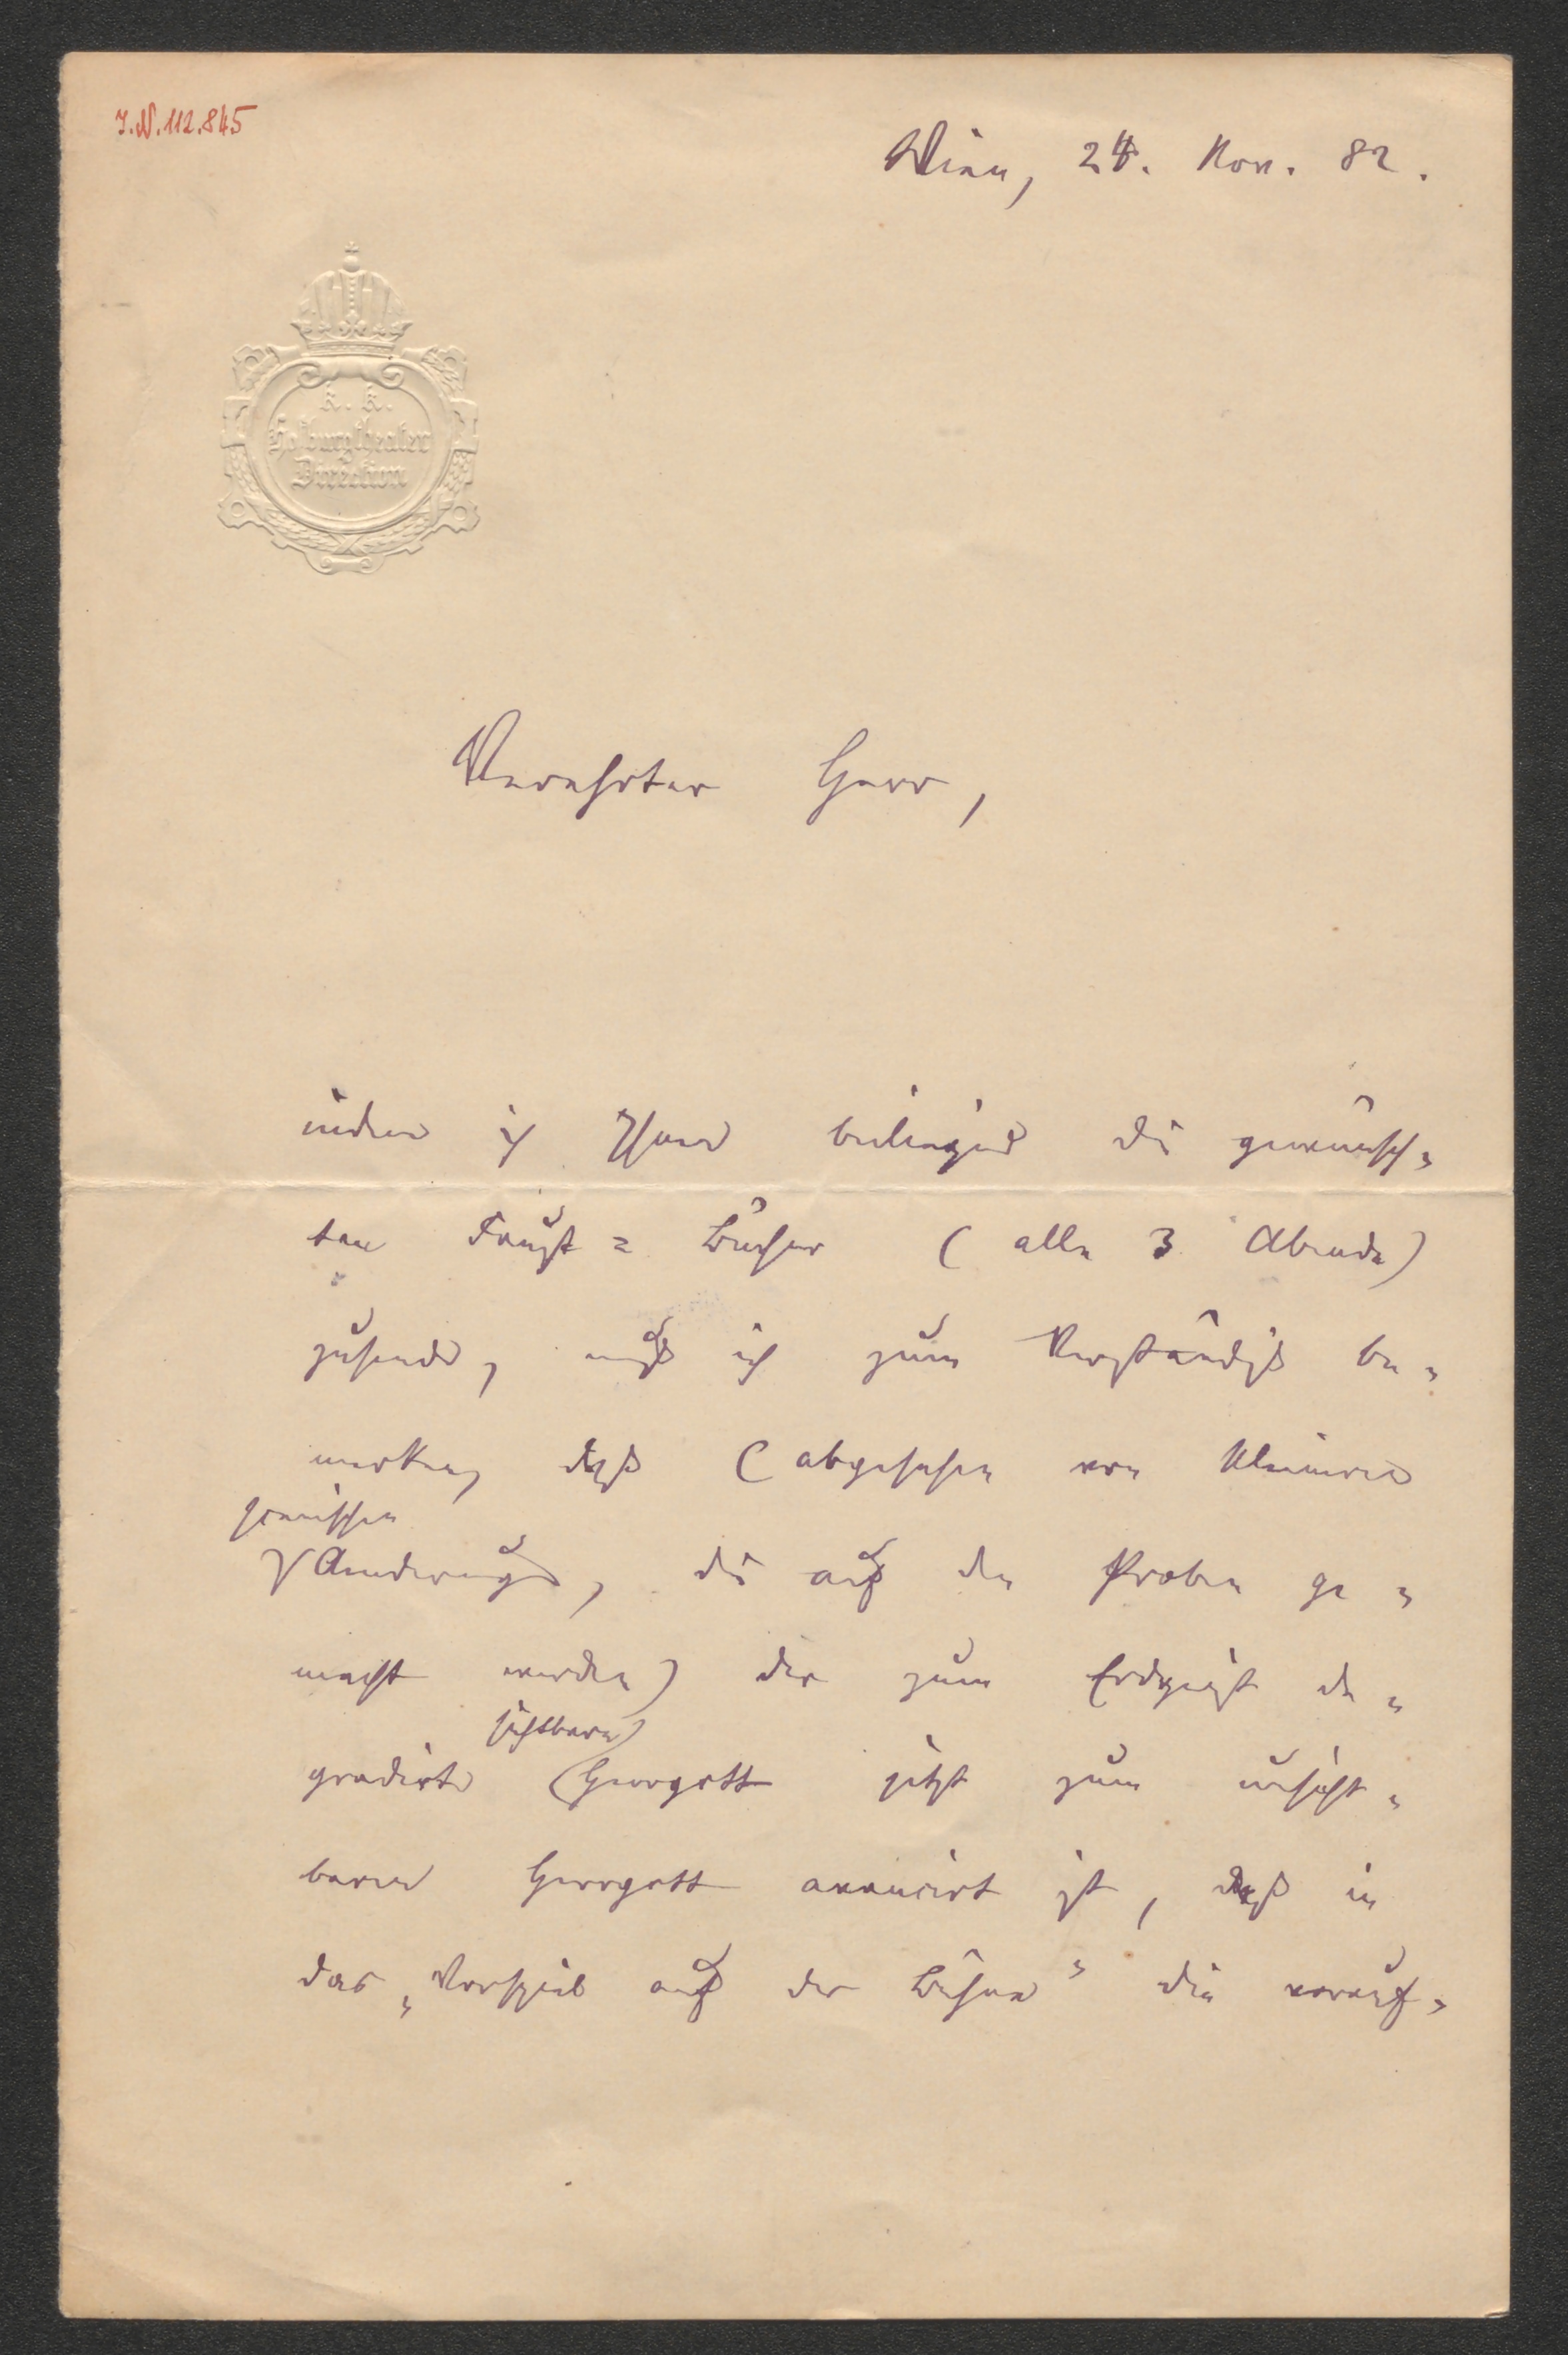 J.N. 112.845
Wien, 24. Nov. 82.
k. k.
Hofburgtheater
Direction
Verehrter Herr,
indem ich Ihnen beiliegend die gewünsch-
ten Faust-Bücher (alle 3 Abende)
zusende, muß ich zum Verständniß be-
merken, daß (abgesehen von kleineren
scenischen
Aenderungen, die auf den Proben ge-
macht wurden) der zum Erdgeist de-
sichtbare
gradirte Herrgott jetzt zum unsicht-
baren Herrgott avancirt ist, daß in
das „Vorspiel auf der Bühne" die vorauf-